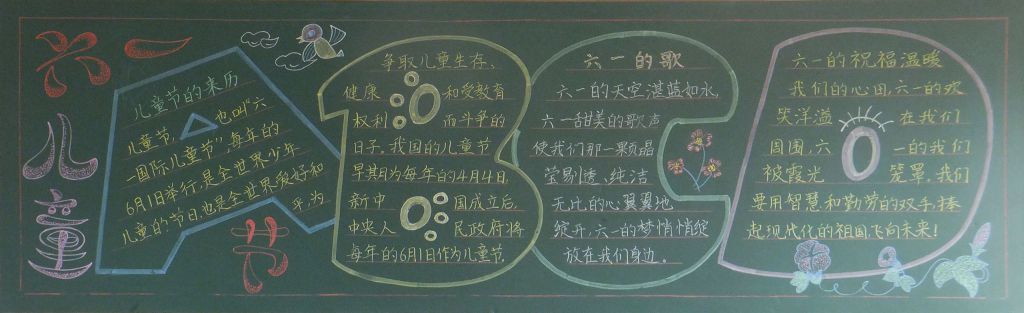 六一
儿童
节
儿童节的来历
儿童节,也叫“六
一国际儿童节”,每年的
6月1日举行,是全世界少年
儿童的节日,也是全世界爱好和
平,为
争取儿童生存、
健康和受教育
权利而斗争的
日子。我国的儿童节
早期为每年的4月4日,
新中国成立后,
中央人民政府将
每年的6月1日作为儿童节.
六一的歌
六一的天空湛蓝如水,
六一甜美的歌声
使我们那一颗颗晶
莹剔透、纯洁
无比的心翼翼地
绽开,六一的梦悄悄绽
放在我们身边。
六一的祝福温暖
我们的心田,六一的欢
笑洋溢在我们
周围,六一的我们
被霞光笼罩。我们
要用智慧和勤劳的双手,捧
起现代化的祖国飞向未来!